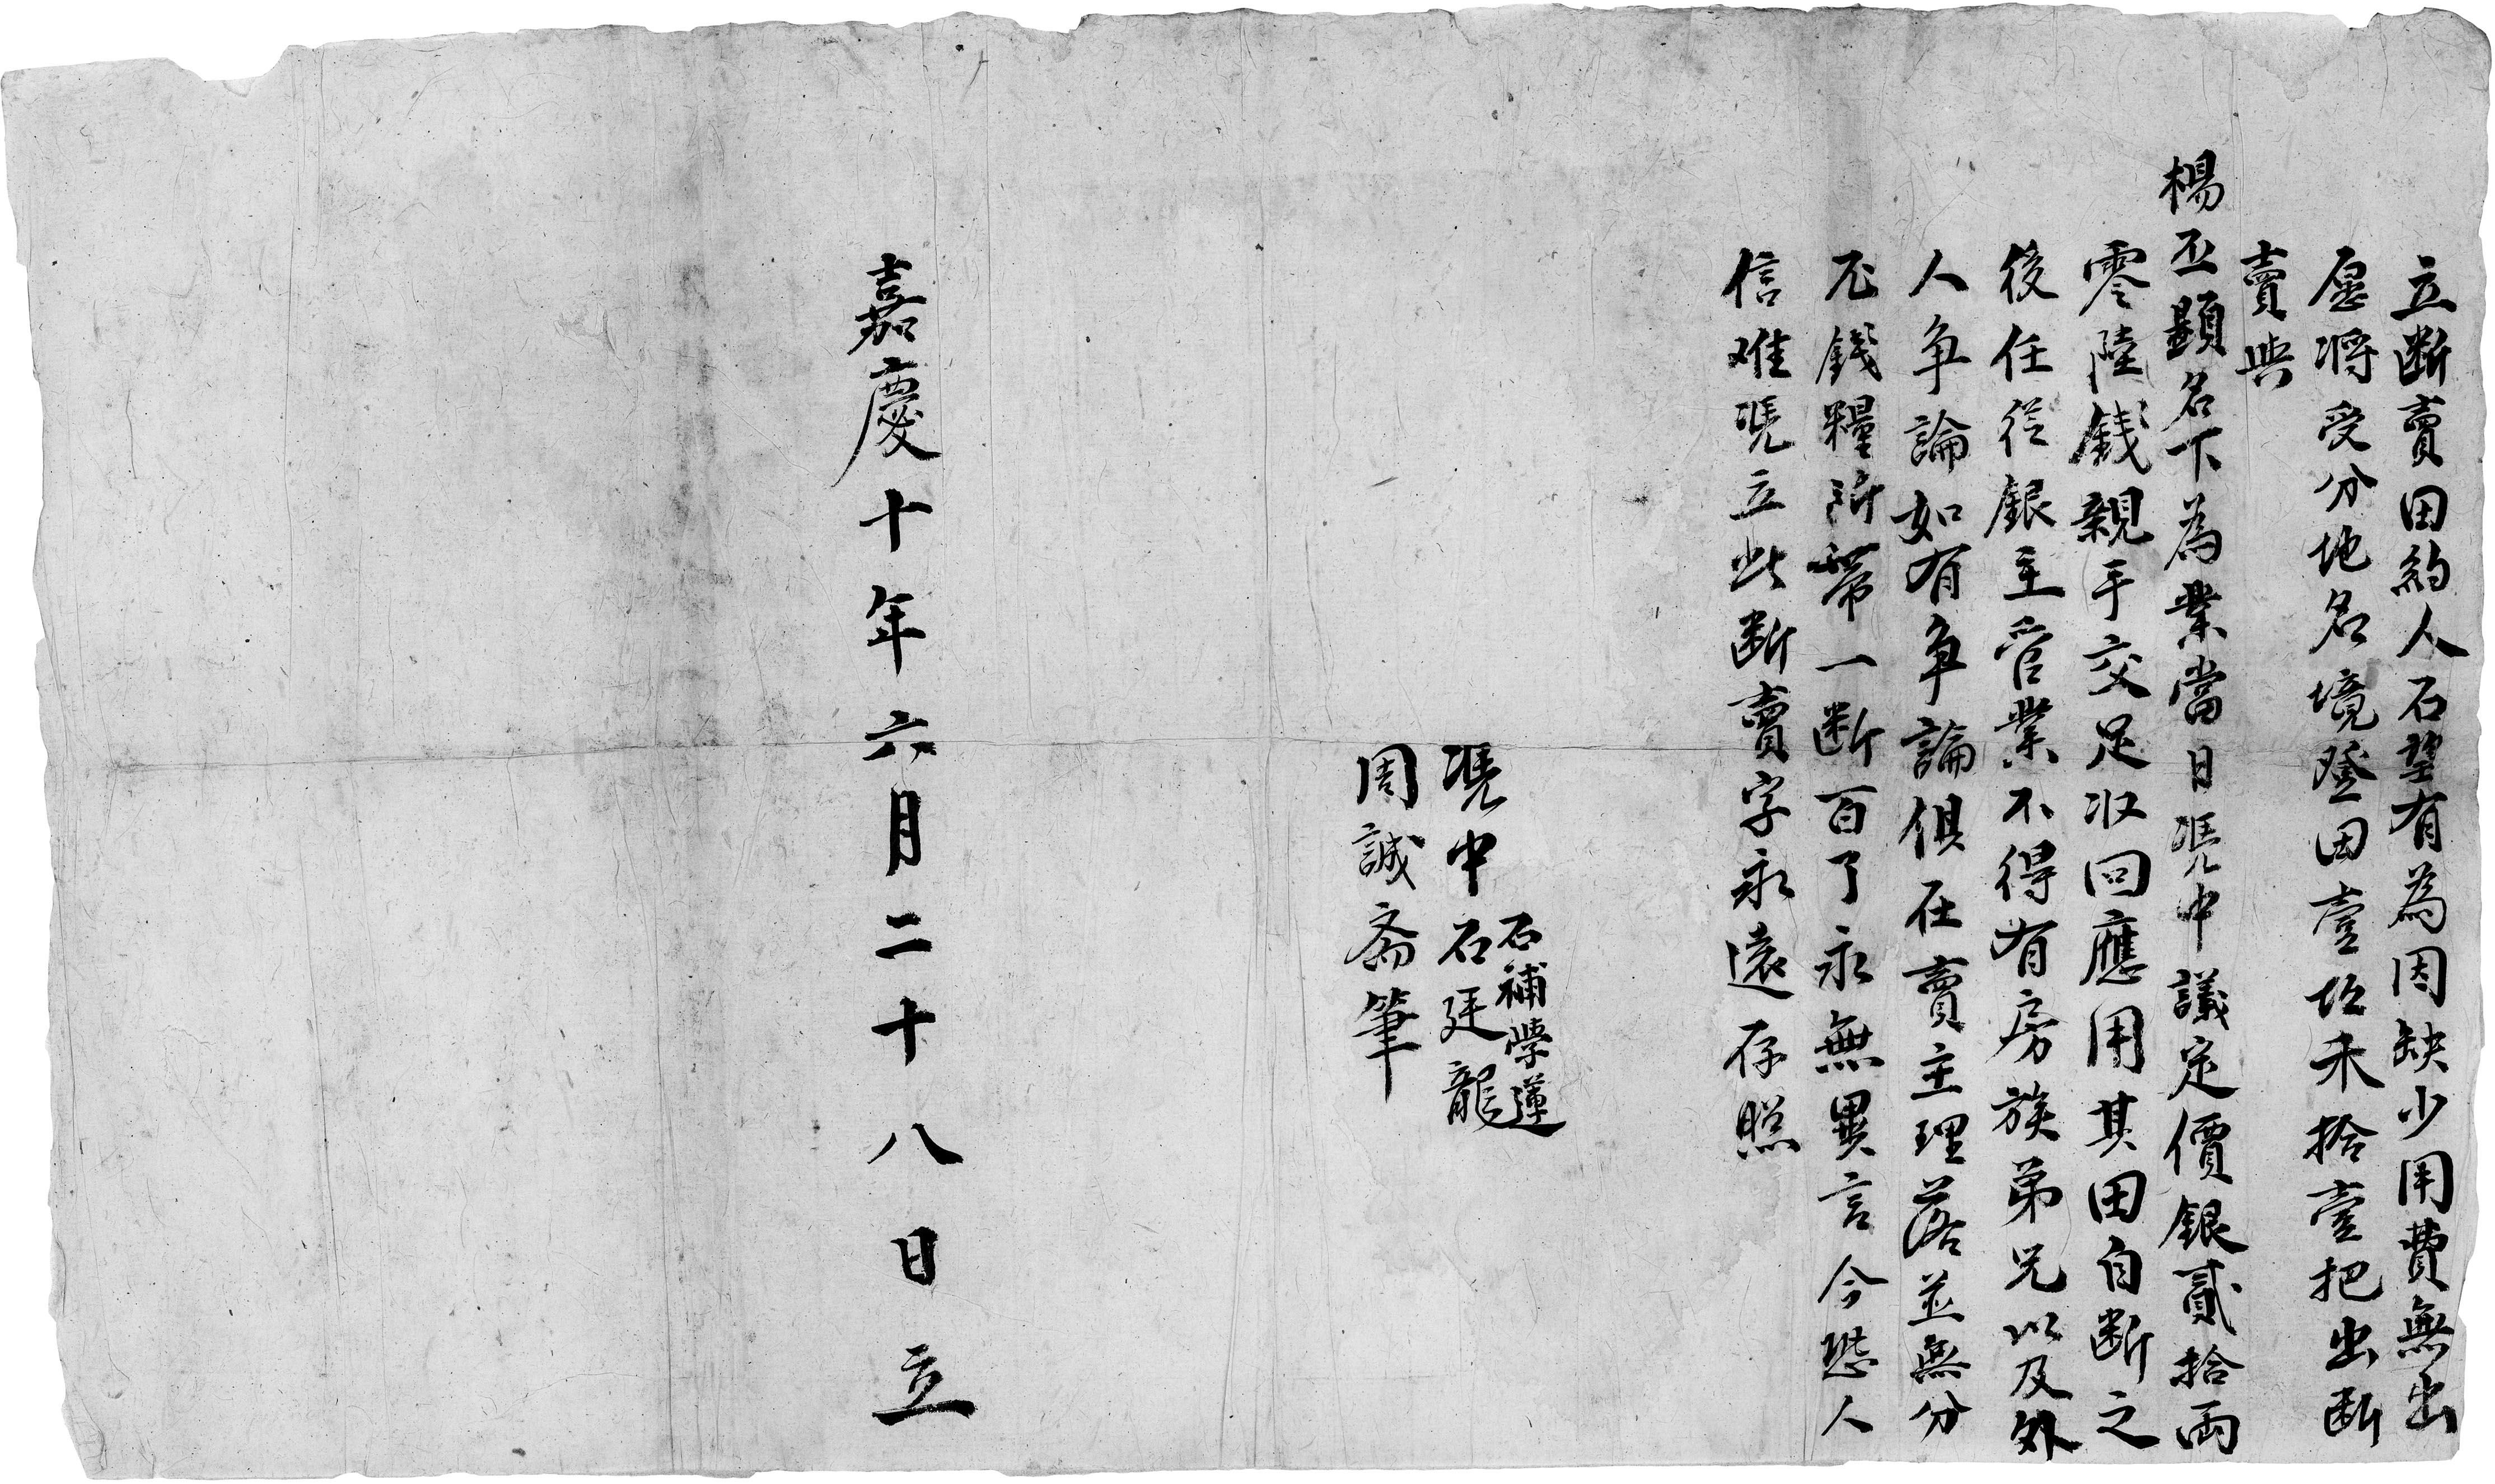 立断賣田約人石塋有為因缺少用費無出
愿將受分地名境登田壹坵禾拾壹把出断
賣與
楊丕顯名下為業當日凴中議定價銀貳拾兩
零陸錢親手交足収回應用其田自断之
後任從銀主管業不得有房族弟兄以及外
人争論如有争論俱在賣主理落並無分
厘錢糧所帶一断百了永無異言今恐人
信难凴立此断賣字永遠存照
石補学蓮
凴中石廷龍
周誠斋筆
嘉慶十年六月二十八日立